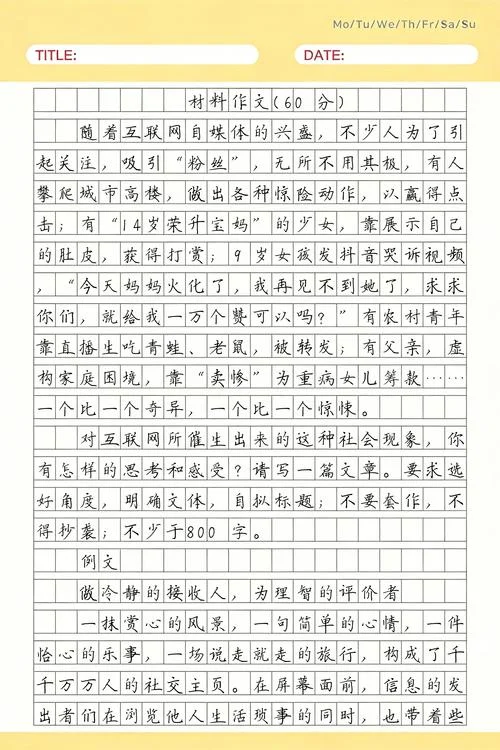 Mo/Tu/We/Th/Fr/Sa/Su
TITLE:
DATE:
材料作文(60 分)
随着互联网自媒体的兴盛，不少人为了引
起关注，吸引“粉丝”，无所不用其极，有人
攀爬城市高楼，做出各种惊险动作，以赢得点
击；有“14岁荣升宝妈”的少女，靠展示自己
的肚皮，获得打赏；9岁女孩发抖音哭诉视频
，“今天妈妈火化了，我再见不到她了，求求
你们，就给我一万个赞可以吗？”有农村青年
靠直播生吃青蛙、老鼠，被转发；有父亲，虚
构家庭困境，靠“卖惨”为重病女儿筹款……
一个比一个奇异，一个比一个惊悚。
对互联网所催生出来的这种社会现象，你
有怎样的思考和感受？请写一篇文章。要求选
好角度，明确文体，自拟标题；不要套作，不
得抄袭；不少于800 字。
例文
做冷静的接收人，为理智的评价者
一抹赏心的风景，一句简单的心情，一件
怡心的乐事，一场说走就走的旅行，构成了千
千万万人的社交主页。在屏幕面前，信息的发
出者们在浏览他人生活琐事的同时，也带着些